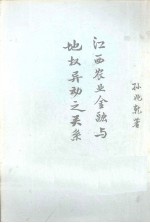 江西农业金融与
地权异动之关系
孙兆乾著